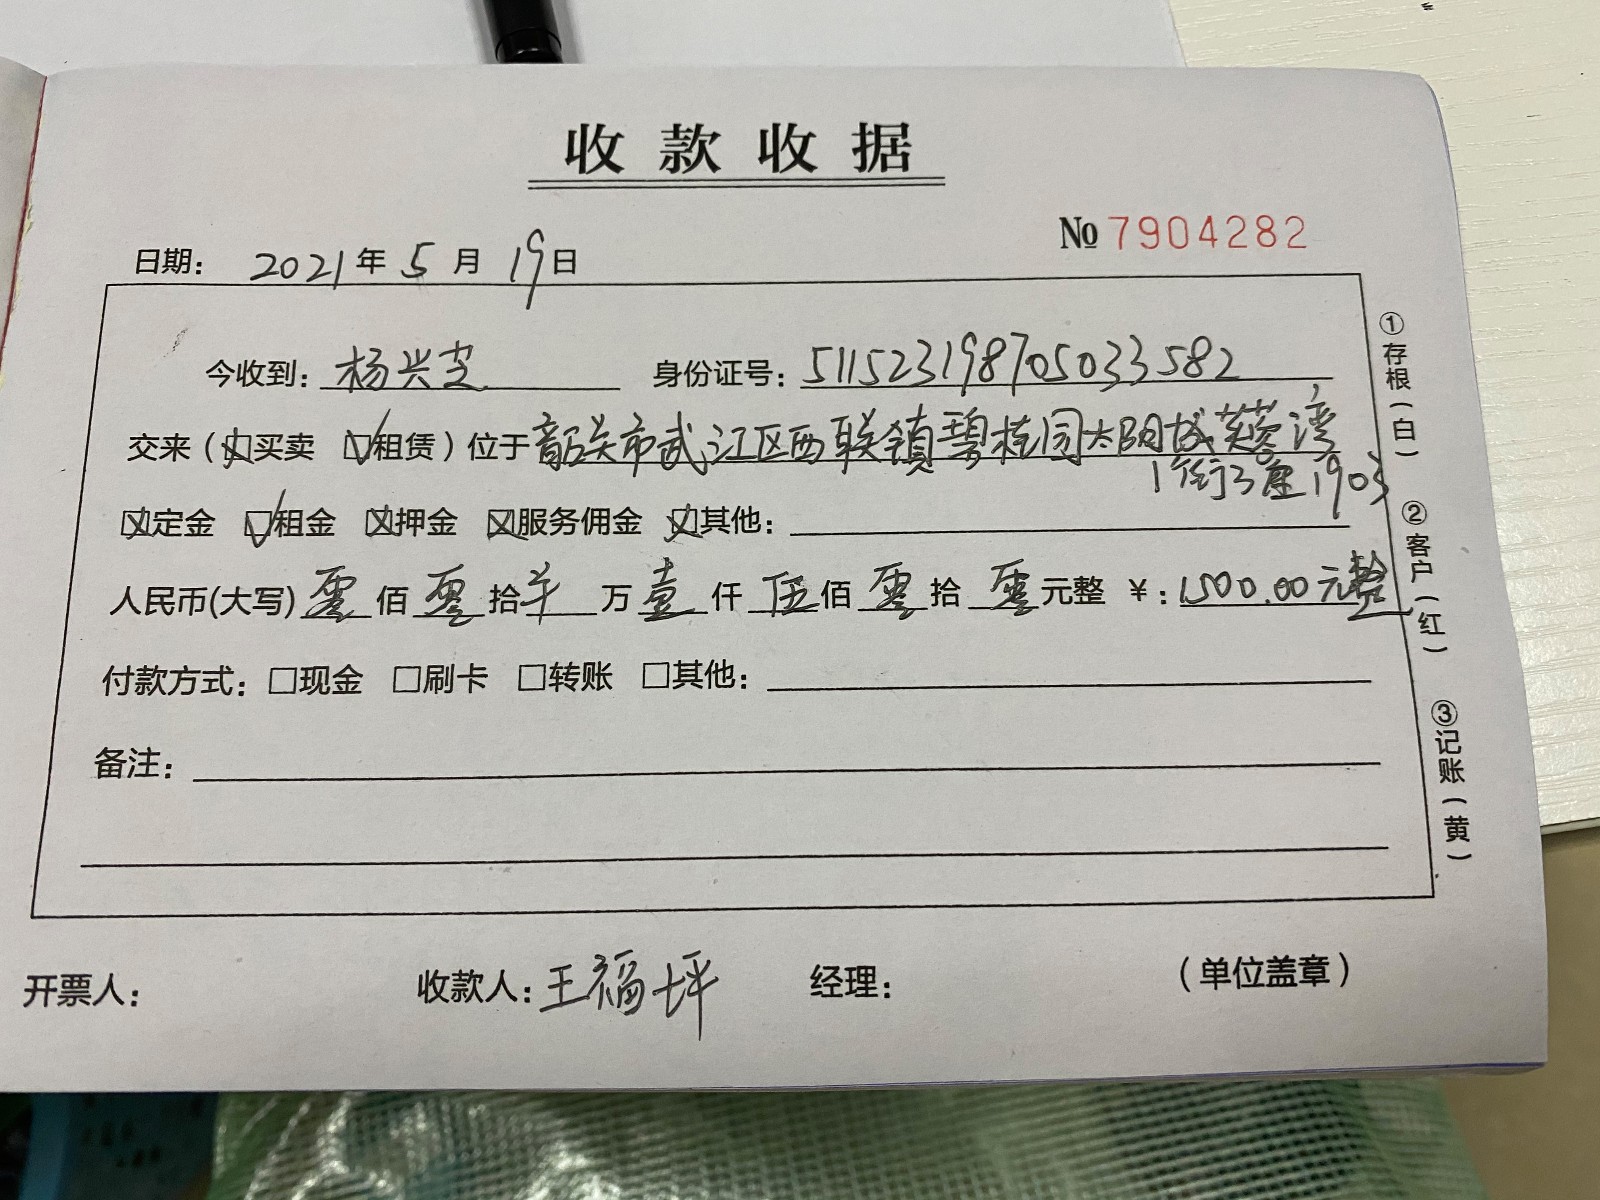 收款收据
№ 7904282
日期： 2021年 5月 19日
今收到：杨兴芝 身份证号：511523198705033582
交来（☒买卖 ☑租赁）位于韶关市武江区西联镇碧桂园太阳城芙蓉湾
1街3座1903
☒定金 ☑租金 ☒押金 ☒服务佣金 ☒其他：
人民币(大写) 零佰零拾 万壹仟伍佰零拾零元整 ￥：1500.00元整
付款方式：□现金 □刷卡 □转账 □其他：
备注：
开票人： 收款人：王福坪 经理： （单位盖章）
①存根（白） ②客户（红） ③记账（黄）